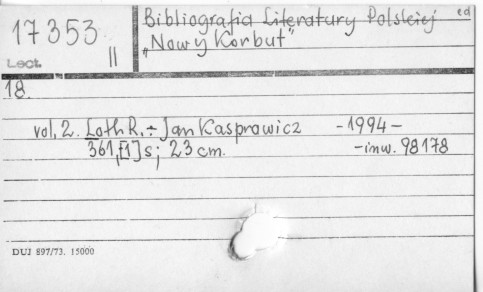 17353
Lect. II
Bibliografia Literatury Polskiej cd
"Nowy Korbut"
18.
vol. 2. Loth R. - Jan Kasprowicz -1994-
361,[1] s; 23 cm. -inw. 98178
DUJ 897/73. 15000